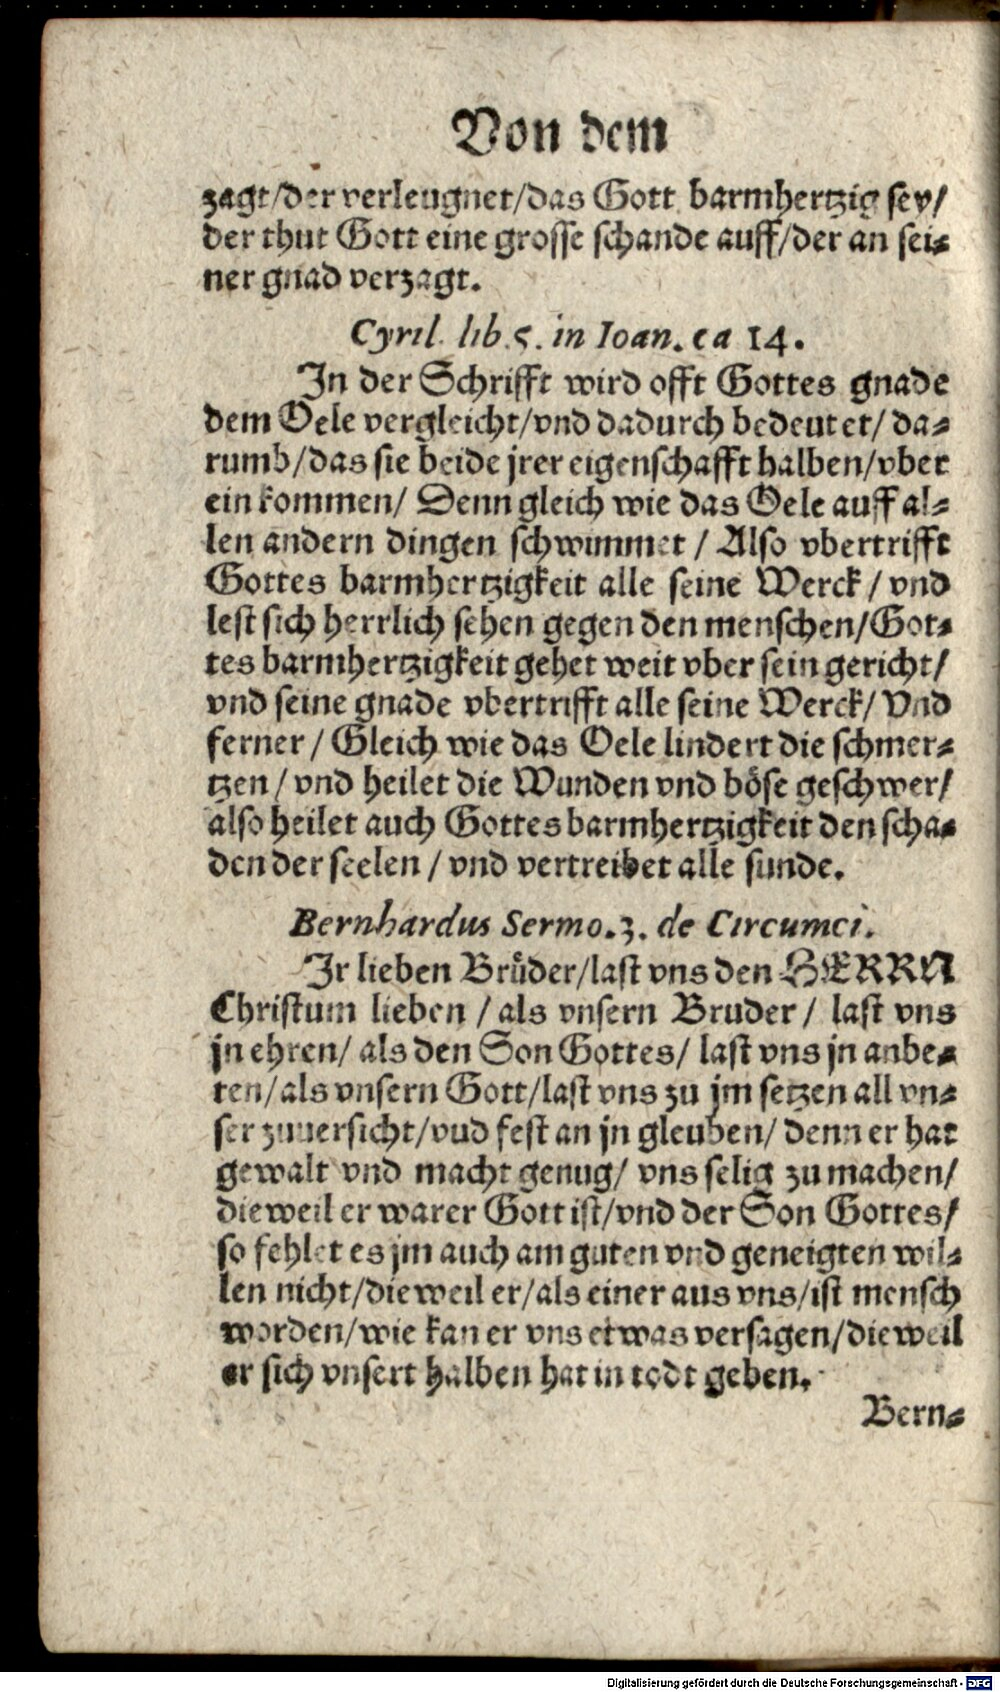 Von dem
zagt/der verleugnet/das Gott barmhertzig sey/
der thut Gott eine grosse schande auff/der an sei-
ner gnad verzagt.
Cyril. lib. 5. in Ioan. ca 14.
In der Schrifft wird offt Gottes gnade
dem Oele vergleicht/vnd dadurch bedeutet/ da-
rumb/das sie beide jrer eigenschafft halben/vber
ein kommen/ Denn gleich wie das Oele auff al-
len andern dingen schwimmet / Also vbertrifft
Gottes barmhertzigkeit alle seine Werck / vnd
lest sich herrlich sehen gegen den menschen/Got-
tes barmhertzigkeit gehet weit vber sein gericht/
vnd seine gnade vbertrifft alle seine Werck/ Vnd
ferner / Gleich wie das Oele lindert die schmer-
tzen / vnd heilet die Wunden vnd böse geschwer/
also heilet auch Gottes barmhertzigkeit den scha-
den der seelen / vnd vertreibet alle sunde.
Bernhardus Sermo. 3. de Circumci.
Jr lieben Brüder/last vns den HERRN
Christum lieben / als vnsern Bruder / last vns
jn ehren/ als den Son Gottes/ last vns jn anbe-
ten/als vnsern Gott/last vns zu jm setzen all vn-
ser zuuersicht/vud fest an jn gleuben/ denn er hat
gewalt vnd macht genug/ vns selig zu machen/
dieweil er warer Gott ist/vnd der Son Gottes/
so fehlet es jm auch am guten vnd geneigten wil-
len nicht/dieweil er/als einer aus vns/ist mensch
worden/wie kan er vns etwas versagen/dieweil
er sich vnsert halben hat in todt geben.
Bern-
Digitalisierung gefördert durch die Deutsche Forschungsgemeinschaft - DFG